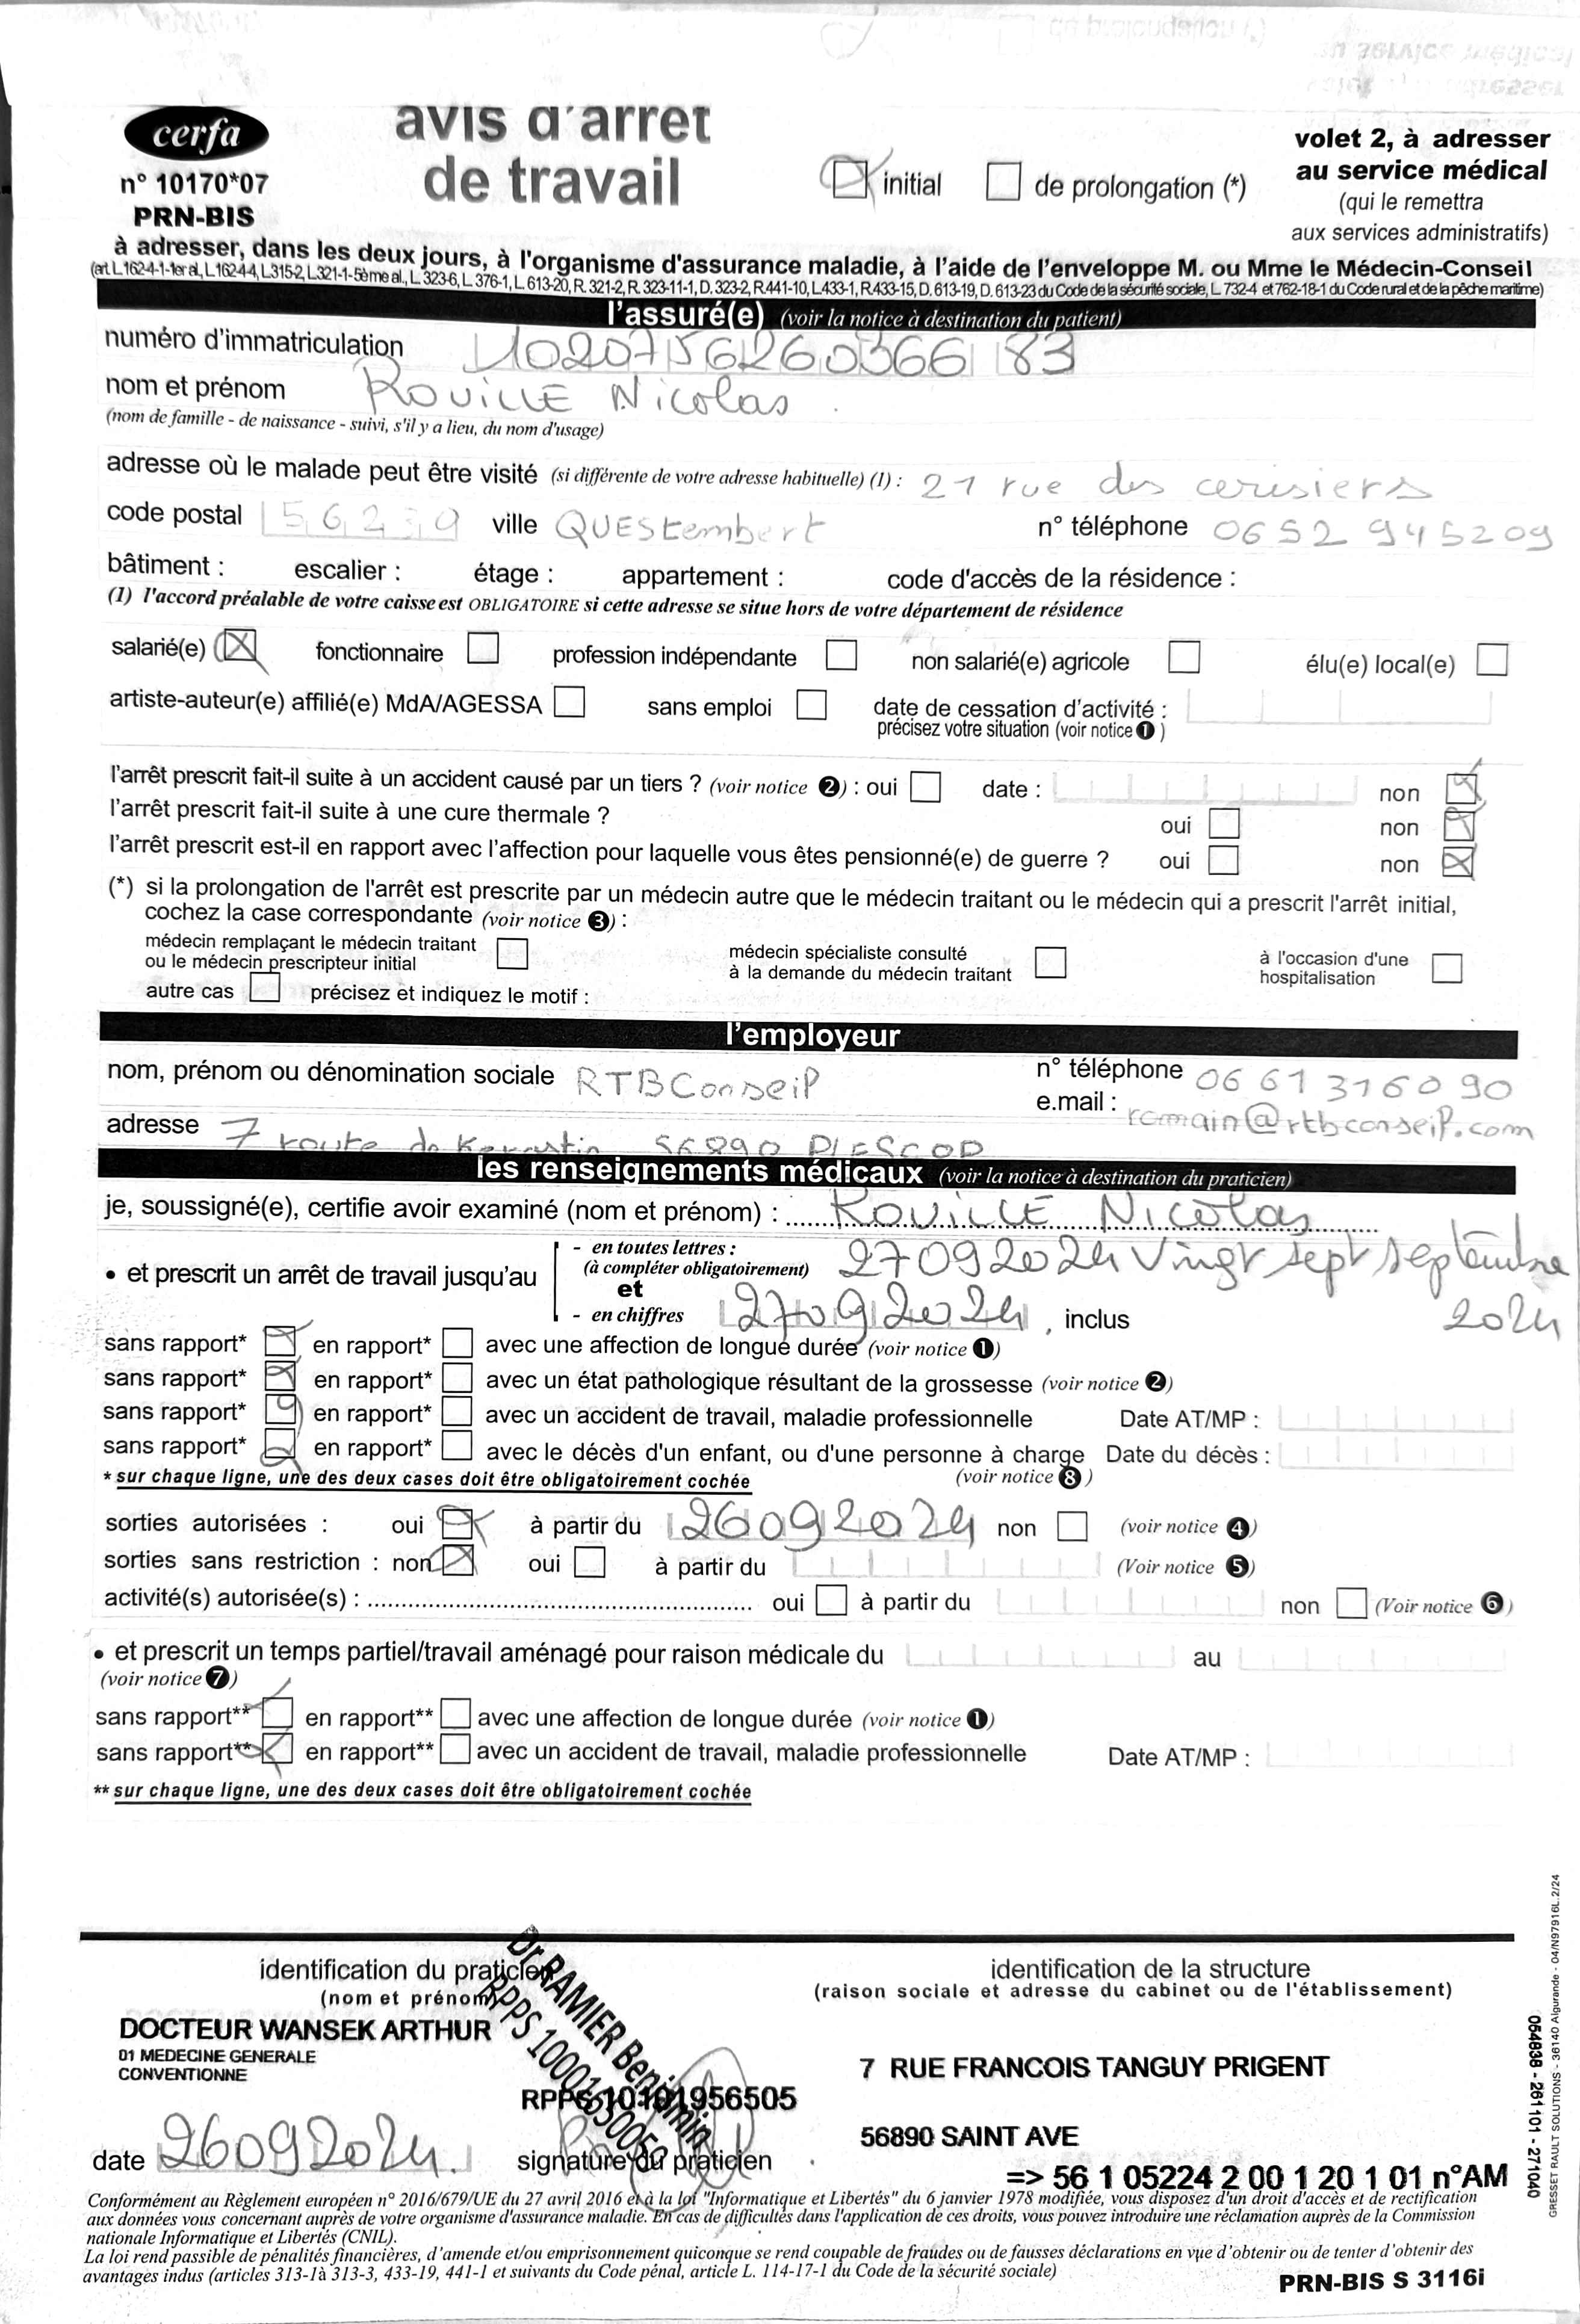 cerfa
n° 10170*07
PRN-BIS
avis d'arret
de travail
initial
de prolongation (*)
volet 2, à adresser
au service médical
(qui le remettra
aux services administratifs)
à adresser, dans les deux jours, à l'organisme d'assurance maladie, à l'aide de l'enveloppe M. ou Mme le Médecin-Conseil
(art L.162-4-1-1er al, L.162-4-4, L.315-2, L.321-1-5ème al., L. 323-6, L. 376-1, L. 613-20, R. 321-2, R. 323-11-1, D. 323-2, R.441-10, L.433-1, R.433-15, D. 613-19, D. 613-23 du Code de la sécurité sociale, L. 732-4 et 762-18-1 du Code rural et de la pêche maritime)
l'assuré(e) (voir la notice à destination du patient)
numéro d'immatriculation 1020756260366 83
nom et prénom ROUILLE Nicolas
(nom de famille - de naissance - suivi, s'il y a lieu, du nom d'usage)
adresse où le malade peut être visité (si différente de votre adresse habituelle) (1) : 21 rue des cerisiers
code postal 56230 ville QUEStembert n° téléphone 06 52 945209
bâtiment : escalier : étage : appartement : code d'accès de la résidence :
(1) l'accord préalable de votre caisse est OBLIGATOIRE si cette adresse se situe hors de votre département de résidence
salarié(e) fonctionnaire profession indépendante non salarié(e) agricole élu(e) local(e)
artiste-auteur(e) affilié(e) MdA/AGESSA sans emploi date de cessation d'activité :
précisez votre situation (voir notice 1 )
l'arrêt prescrit fait-il suite à un accident causé par un tiers ? (voir notice 2) : oui date : non
l'arrêt prescrit fait-il suite à une cure thermale ? oui non
l'arrêt prescrit est-il en rapport avec l'affection pour laquelle vous êtes pensionné(e) de guerre ? oui non
(*) si la prolongation de l'arrêt est prescrite par un médecin autre que le médecin traitant ou le médecin qui a prescrit l'arrêt initial,
cochez la case correspondante (voir notice 3) :
médecin remplaçant le médecin traitant
ou le médecin prescripteur initial
médecin spécialiste consulté
à la demande du médecin traitant
à l'occasion d'une
hospitalisation
autre cas précisez et indiquez le motif :
l'employeur
nom, prénom ou dénomination sociale RTBConseil n° téléphone 06 61 316090
e.mail : romain@rtbconseil.com
adresse 7 route de 56890 PLESCOP
les renseignements médicaux (voir la notice à destination du praticien)
je, soussigné(e), certifie avoir examiné (nom et prénom) : ROUILLE Nicolas
- en toutes lettres : 27092024 Vingt sept septembre
(à compléter obligatoirement)
• et prescrit un arrêt de travail jusqu'au
et
- en chiffres 27092024, inclus 2024
sans rapport* en rapport* avec une affection de longue durée (voir notice 1)
sans rapport* en rapport* avec un état pathologique résultant de la grossesse (voir notice 2)
sans rapport* en rapport* avec un accident de travail, maladie professionnelle Date AT/MP :
sans rapport* en rapport* avec le décès d'un enfant, ou d'une personne à charge Date du décès :
* sur chaque ligne, une des deux cases doit être obligatoirement cochée (voir notice 8 )
sorties autorisées : oui à partir du 26092024 non (voir notice 4)
sorties sans restriction : non oui à partir du (Voir notice 5)
activité(s) autorisée(s) : oui à partir du non (Voir notice 6)
• et prescrit un temps partiel/travail aménagé pour raison médicale du au
(voir notice 7)
sans rapport** en rapport** avec une affection de longue durée (voir notice 1)
sans rapport** en rapport** avec un accident de travail, maladie professionnelle Date AT/MP :
** sur chaque ligne, une des deux cases doit être obligatoirement cochée
identification du praticien
(nom et prénom)
identification de la structure
(raison sociale et adresse du cabinet ou de l'établissement)
DOCTEUR WANSEK ARTHUR
01 MEDECINE GENERALE
CONVENTIONNE
Dr RAMIER Benjamin
RPPS
RPPS 10101956505
7 RUE FRANCOIS TANGUY PRIGENT
56890 SAINT AVE
date 26092024. signature du praticien
=> 56 1 05224 2 00 1 20 1 01 n°AM
Conformément au Règlement européen n° 2016/679/UE du 27 avril 2016 et à la loi "Informatique et Libertés" du 6 janvier 1978 modifiée, vous disposez d'un droit d'accès et de rectification
aux données vous concernant auprès de votre organisme d'assurance maladie. En cas de difficultés dans l'application de ces droits, vous pouvez introduire une réclamation auprès de la Commission
nationale Informatique et Libertés (CNIL).
La loi rend passible de pénalités financières, d'amende et/ou emprisonnement quiconque se rend coupable de fraudes ou de fausses déclarations en vue d'obtenir ou de tenter d'obtenir des
avantages indus (articles 313-1à 313-3, 433-19, 441-1 et suivants du Code pénal, article L. 114-17-1 du Code de la sécurité sociale)
PRN-BIS S 3116i
054838 - 261101 - 271040
GRESSET RAULT SOLUTIONS - 36140 Aigurande - 04/N97916L.2/24